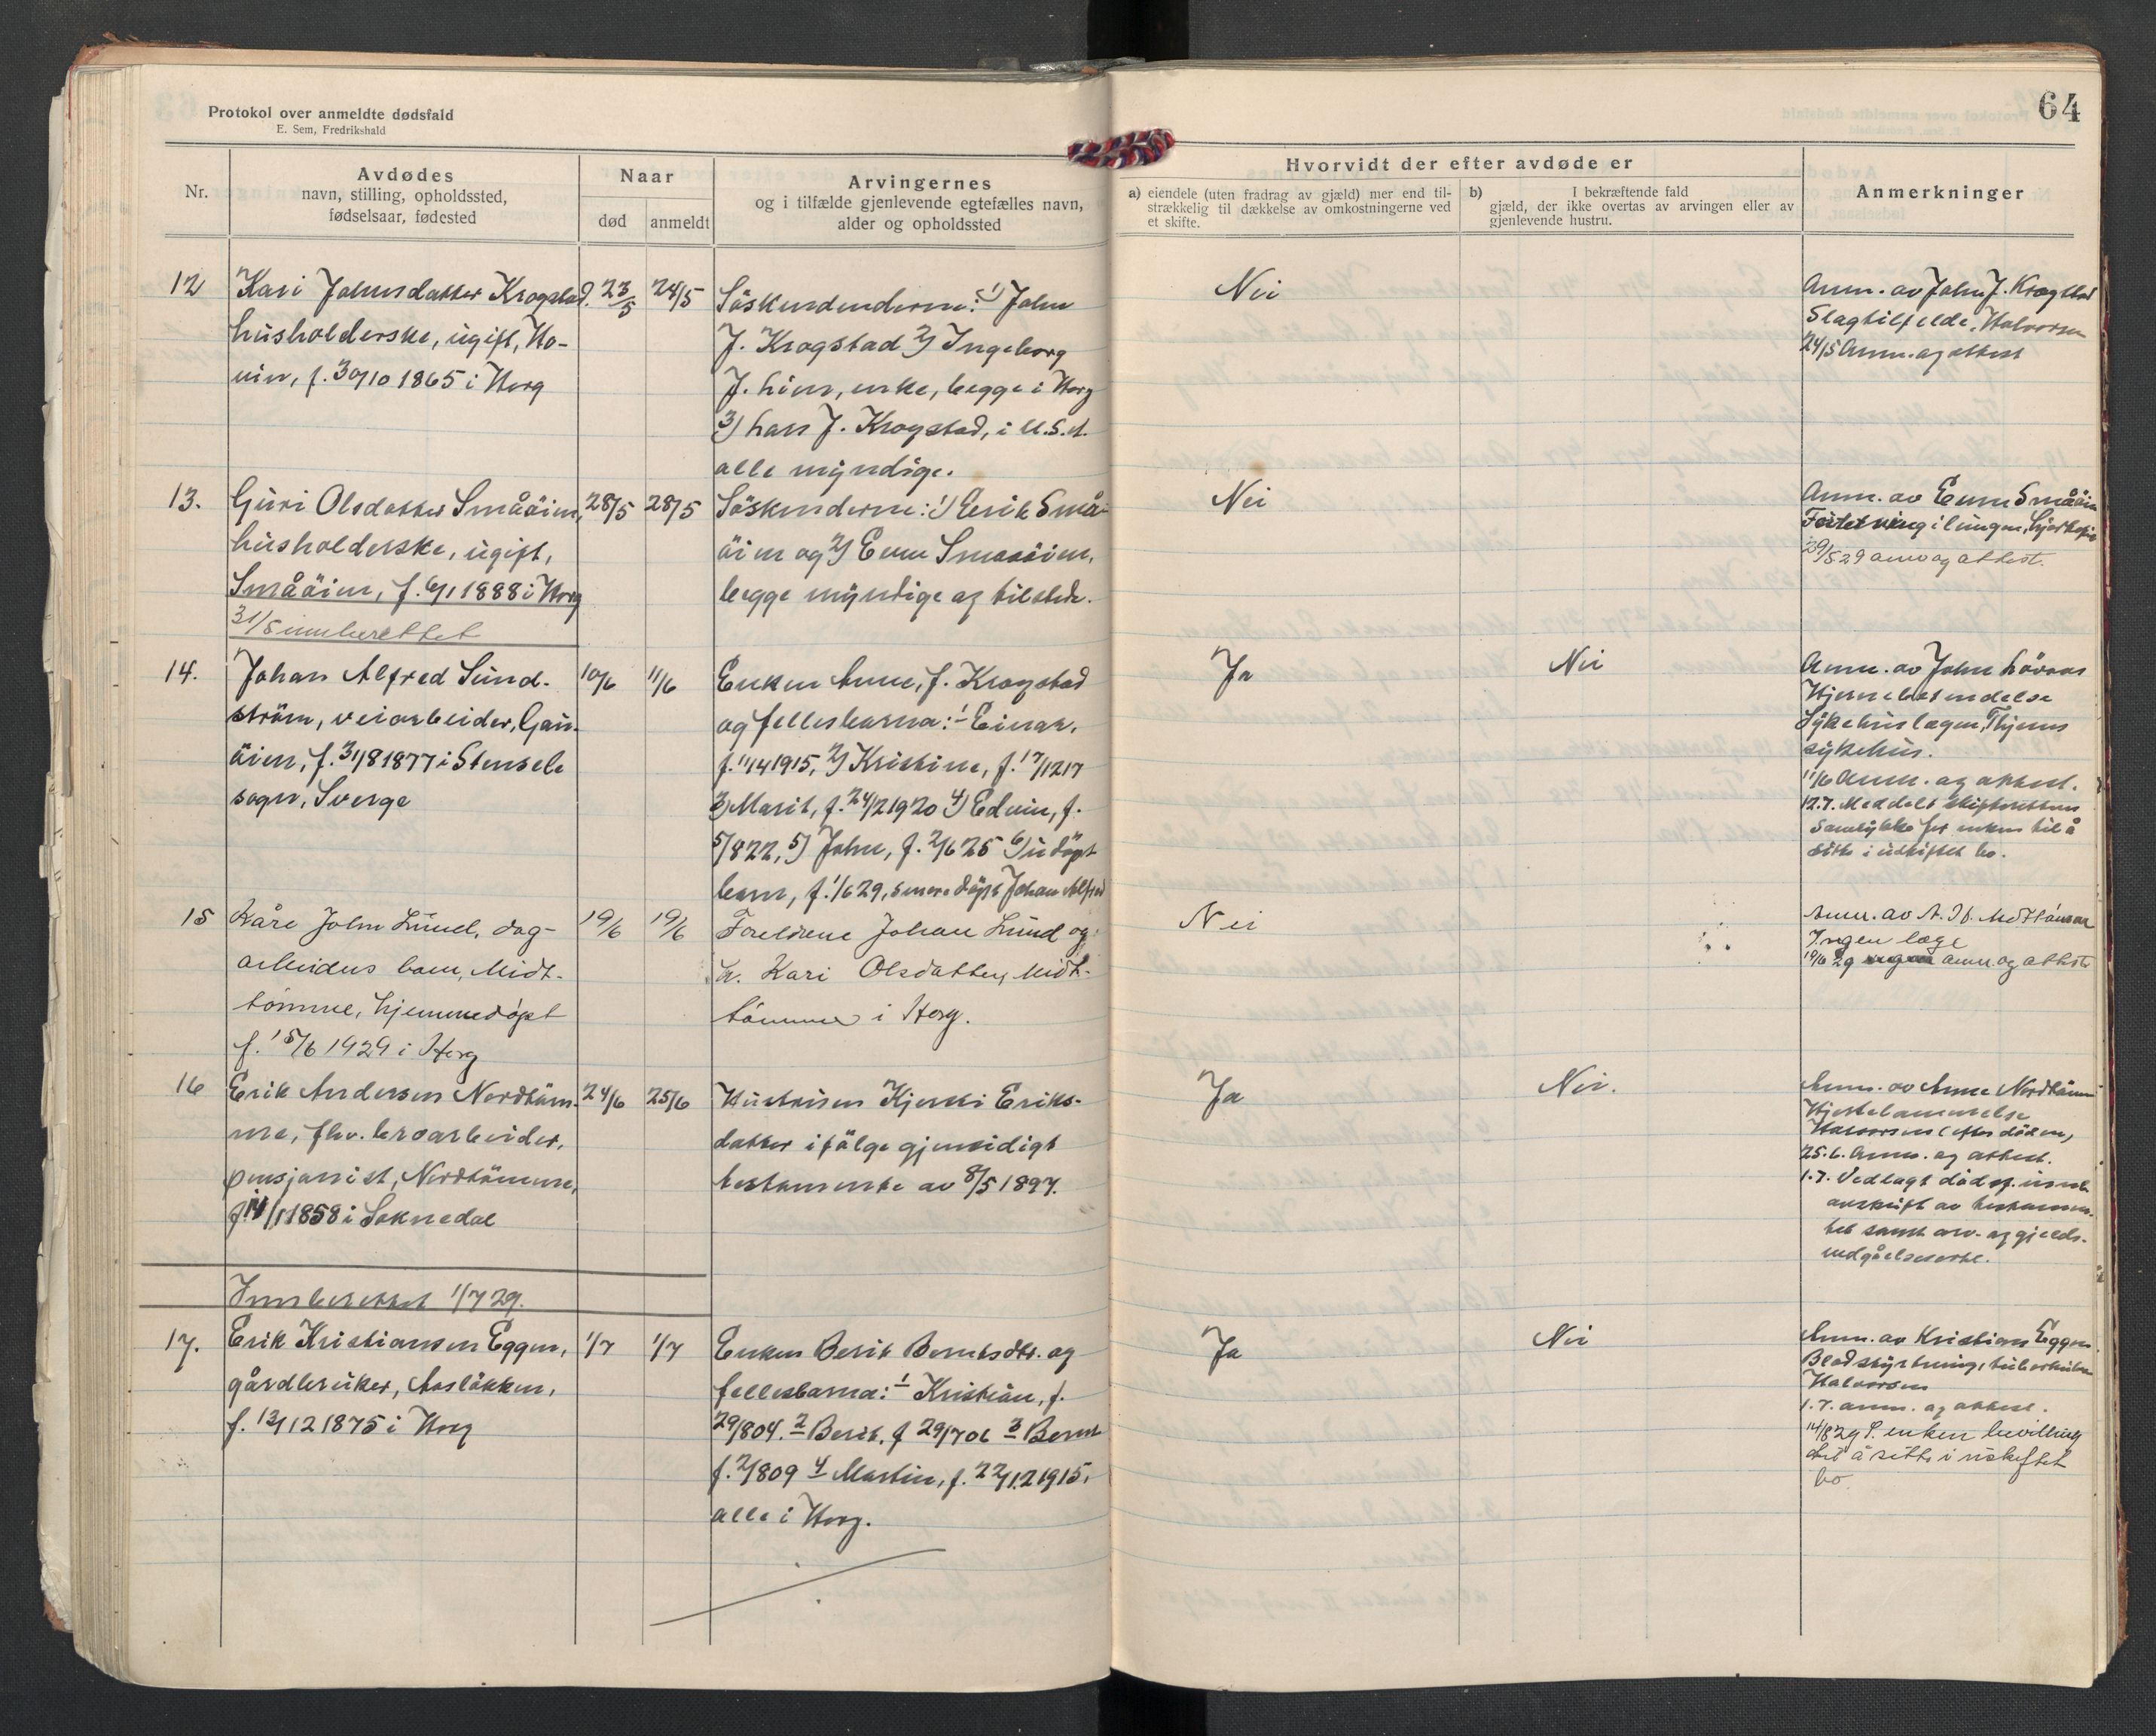 Protokol over anmeldte dødsfald
E. Sem, Fredrikshald
64
Nr.
Avdødes
navn, stilling, opholdssted,
fødselsaar, fødested
Naar
død
anmeldt
Arvingernes
og i tilfælde gjenlevende egtefælles navn,
alder og opholdssted
Hvorvidt der efter avdøde er
a) eiendele (uten fradrag av gjæld) mer end til-
strækkelig til dækkelse av omkostningerne ved
et skifte.
b) I bekræftende fald
gjæld, der ikke overtas av arvingen eller av
gjenlevende hustru.
Anmerkninger
12
Kari Johnsdatter Krogstad.
husholderske, ugift, Ho-
vin, f. 30/10 1865 i Horg
23/5
24/5
1) John
J. Krogstad 2) Ingeborg
J. Lien, enke, begge i Horg
3) Lars J. Krogstad, i U.S.A.
alle myndige.
Nei
Anm. av John J. Krogstad
Slagtilfelde. Halvorsen
24/5 Anm. og attest
13.
Guri Olsdatter Småöien,
husholderske, ugift,
Småöien, f. 6/1 1888 i Horg
31/5 innberettet
28/5
28/5
Söskenderne: 1) Erik Små-
öien og 2) Even Smaaöien,
begge myndige og tilstede.
Nei
Anm. av Even Småöien
29/5 29 anm og attest.
14.
Johan Alfred Sund-
ström, veiarbeider, Gau-
öien, f. 31/8 1877 i Stensele
sogn, Sverge
10/6
11/6
Enken Anne, f. Krogstad
og fellesbarna: 1 Einar,
f. 11/4 1915, 2) Kristine, f. 17/12 17
3) Marit, f. 24/2 1920 4) Edvin, f.
5/8 22, 5) John, f. 2/6 25 6) udöpt
barn, f. 1/6 29, senere döpt Johan Alfred
Ja
Nei
Anm. av John Lövaas
Hjernebetendelse
Sykehuslægen,
sykehus.
11/6 Anm. og attest.
12.7. Meddelt skifterettens
samtykke for enken til å
sitte i uskiftet bo.
15
Kåre John Lund, dag-
arbeiders barn, Midt-
tömme, hjemmedöpt
f. 15/6 1929 i Horg
19/6
19/6
Foreldrene Johan Lund og
h. Kari Olsdatter, Midt-
tömme i Horg.
Nei
Ingen læge
19/6 29 anm. og attest
16
Erik Andersen Nordtöm-
me, fhv. broarbeider,
pensjonist, Nordtömme,
1858 i Soknedal
24/6
25/6
Hustruen Kjersti Eriks-
datter ifölge gjensidigt
testamente av 8/5 1897.
Ja
Nei.
Anm. av Anne Nordtömme
Hjertelammelse
Halvorsen (efter döden)
25.6. Anm. og attest.
1.7. Vedlagt dödsf.
avskrift av testamen-
tet samt arv- og gjelds-
vedgåelseserkl.
Innberettet 1/7 29.
17.
Erik Kristiansen Eggen,
gårdbruker, Aaslökken,
f. 13/12 1875 i Horg
1/7
1/7
Enken Berit Berntsdtr. og
fellesbarna: 1 Kristian, f.
29/8 04. 2 Berit, f 29/7 06 3 Bernt
f. 2/8 09 4 Martin, f. 22/12 1915,
alle i Horg.
Ja
Nei
Anm. av Kristian Eggen
Blodstyrtning, tuberkulose
Halvorsen
1.7. anm. og attest.
14/8 29 enken bevilling
til å sitte i uskiftet
bo.